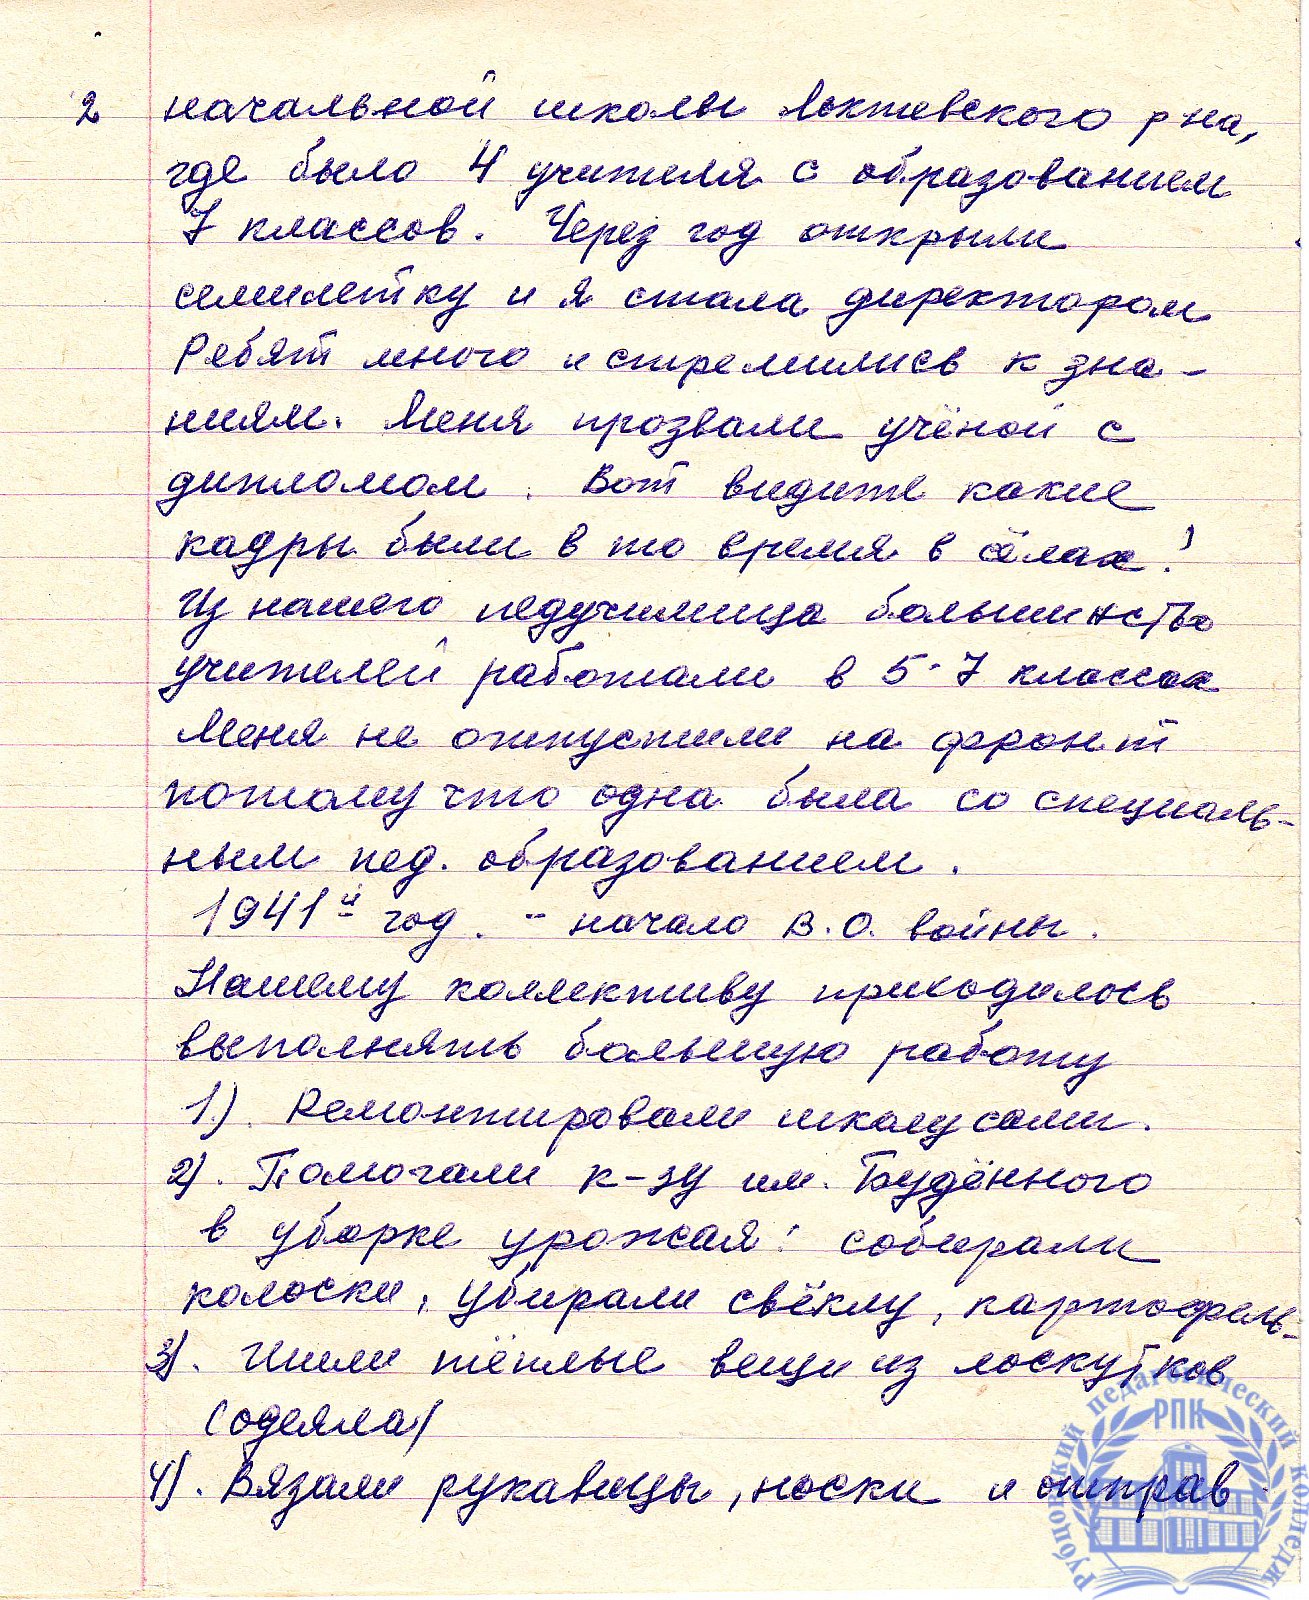 2 начальной школы Локтевского р-на,
где было 4 учителя с образованием
7 классов. Через год открыли
семилетку и я стала директором
Ребят много и стремились к зна-
ниям. Меня прозвали учёной с
дипломом. Вот видите какие
кадры были в то время в сёлах!
Из нашего педучилища большинство
учителей работали в 5-7 классах
Меня не отпустили на фронт
потому что одна была со специаль-
ным пед. образованием.
1941й год. - начало В.О. войны.
Нашему коллективу приходилось
выполнять большую работу
1). Ремонтировали школу сами.
2). Помогали к-зу им. Будённого
в уборке урожая: собирали
колоски, убирали свёклу, картофель-
3). Шили тёплые вещи из лоскутков
(одеяла)
4). Вязали рукавицы, носки и отправ
Рубцовский педагогический колледж
РПК